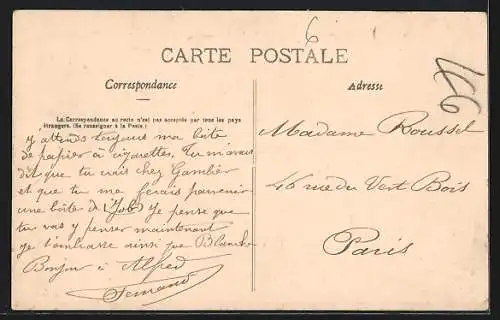 6
CARTE POSTALE
Correspondance
Adresse
La Correspondance au recto n'est pas acceptée par tous les pays
étrangers. (Se renseigner à la Poste.)
j'attends toujours ma boîte
de papier à cigarettes, Tu m'avais
dit que tu irais chez Gambier
et que tu me ferais parvenir
une boîte de (Job) Je pense que
tu vas y penser maintenant
Je t'embrasse ainsi que Blanche
Bonjour à Alfred
Fernand
Madame Roussel
46 rue du Vert Bois
Paris